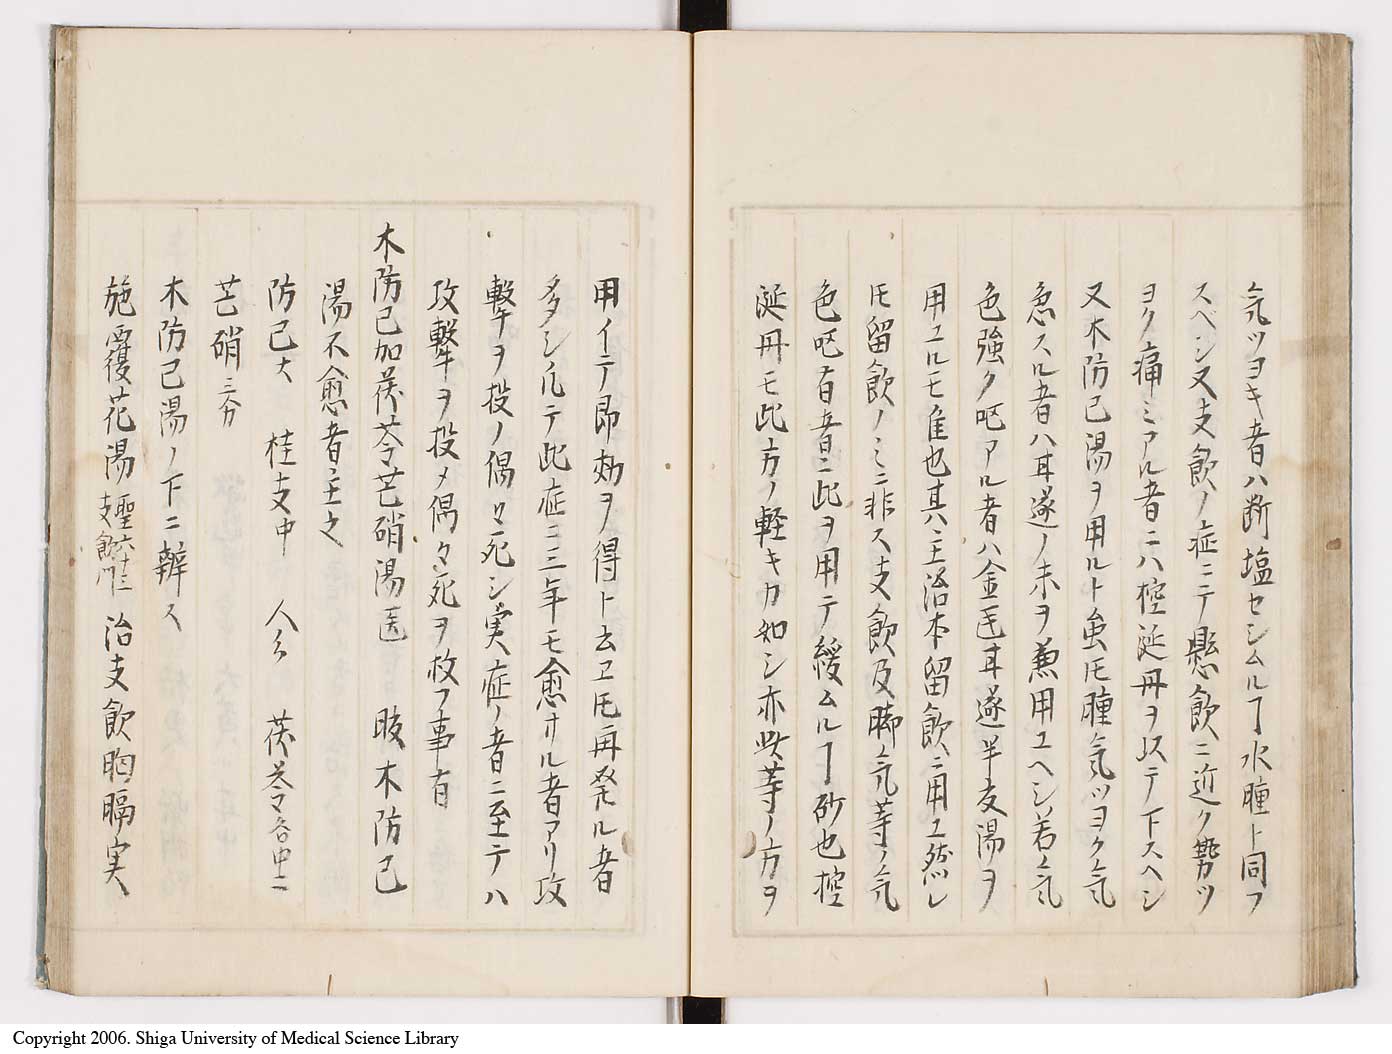 気ツヨキ者ハ断塩セシムルヿ水腫ト同フ
スベシ又支飲ノ症ニテ懸飲ニ近ク勢ツ
ヨク痛ミアル者ニハ控涎丹ヲ以テ下スヘシ
又木防已湯ヲ用ルト虽𪜈腫気ツヨク気
急スル者ハ甘遂ノ末ヲ兼用ユヘシ若気
色強ク呕アル者ハ金匮甘遂半夏湯ヲ
用ユルモ隹也其ハ主治本留飲ニ用ユ然レ
𪜈留飲ノミニ非ス支飲及脚気等ノ気
色呕有者ニ此ヲ用テ緩ムルヿ砂也控
涎丹モ此方ノ軽キカ如シ亦此等ノ方ヲ
用イテ即効ヲ得ト云エ𪜈再発ル者
多シ凡テ此症ニ三年モ愈サル者アリ攻
撃ヲ投ノ偶々死シ実症ノ者ニ至テハ
攻撃ヲ投メ偶々死ヲ救フ事有
木防已加茯苓芒硝湯匮 股木防已
湯不愈者主之
防已大 桂支中 人參 茯苓各中二
芒硝三分
木防已湯ノ下ニ辨ス
旋覆花湯聖六十三支飲門 治支飲胸膈実